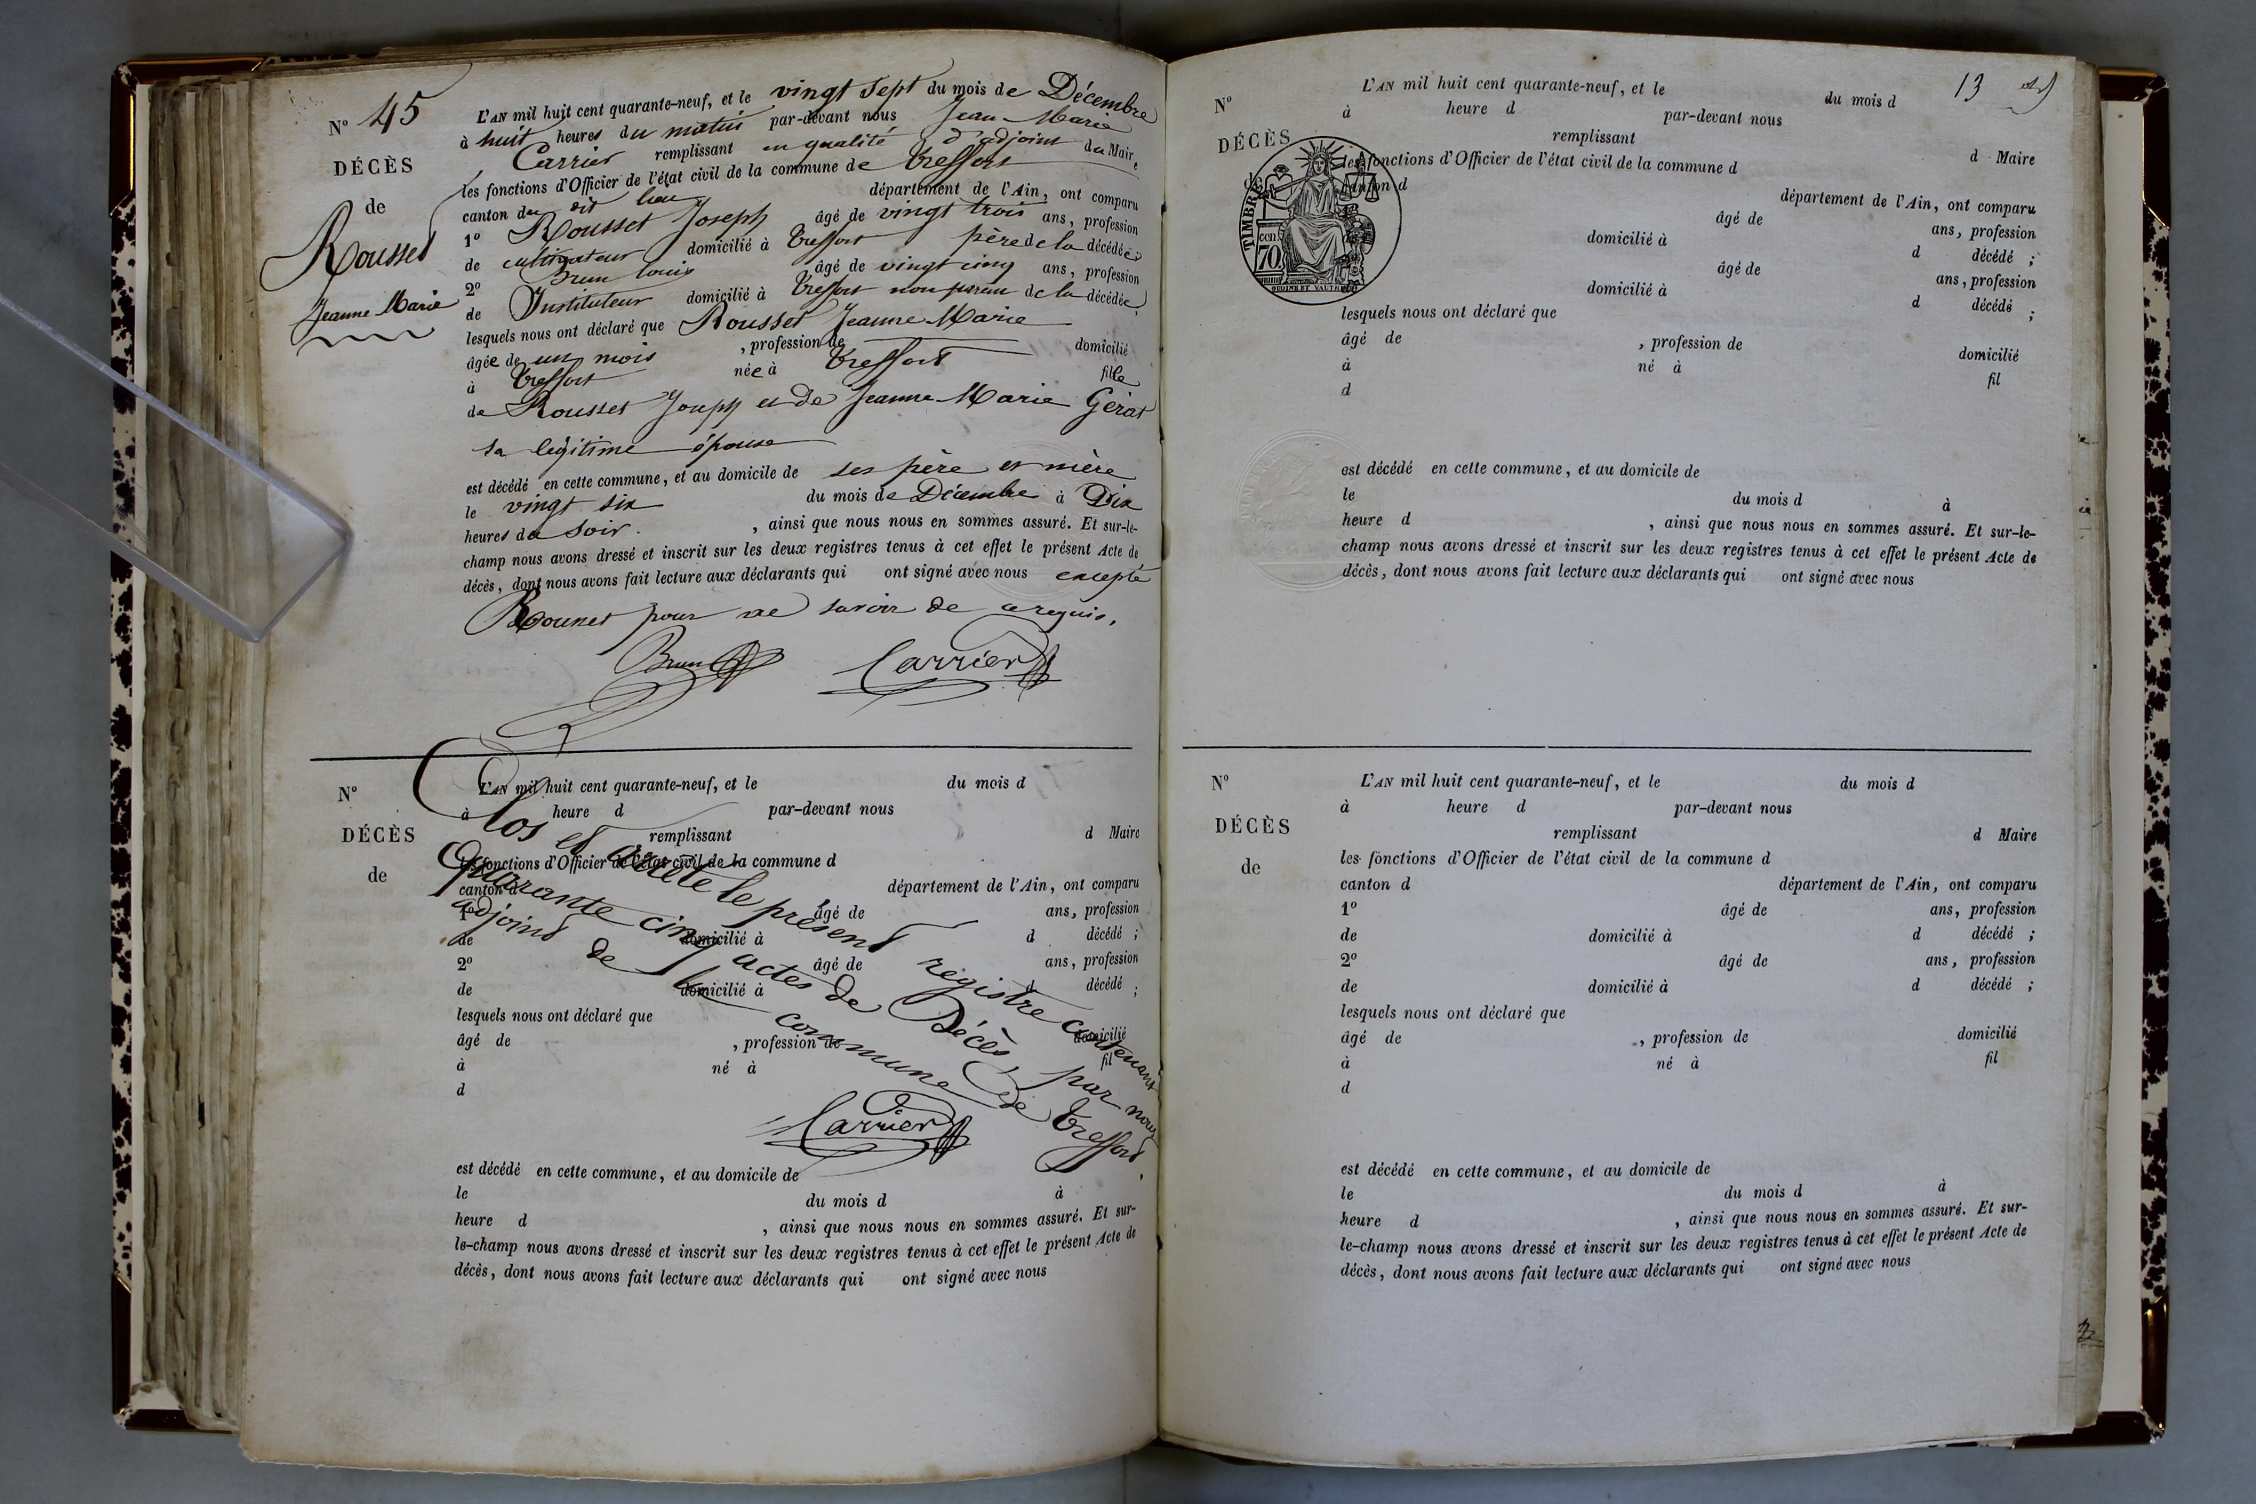 N° 45
DÉCÈS
de
Rousset
Jeanne Marie
L'AN mil huit cent quarante-neuf, et le vingt sept du mois de Décembre
à huit heures du matin par-devant nous Jean Marie
Carrier remplissant en qualité d'adjoint du Maire
les fonctions d'Officier de l'état civil de la commune de Treffort
canton du dit lieu département de l'Ain, ont comparu
1° Rousset Joseph âgé de vingt trois ans, profession
de cultivateur domicilié à Treffort père de la décédée ;
2° Brun louis âgé de vingt cinq ans, profession
de Instituteur domicilié à Treffort non parent de la décédée ;
lesquels nous ont déclaré que Rousset Jeanne Marie
âgée de un mois , profession de domicilié
à Treffort née à Treffort fille
de Rousset Joseph et de Jeanne Marie Gérat
sa légitime épouse
est décédé en cette commune, et au domicile de ses père et mère
le vingt six du mois de Décembre à Dix
heures du soir. , ainsi que nous nous en sommes assuré. Et sur-le-
champ nous avons dressé et inscrit sur les deux registres tenus à cet effet le présent Acte de
décès, dont nous avons fait lecture aux déclarants qui ont signé avec nous excepté
Rousset pour ne savoir de ce requis.
Brun Carrier
N°
DÉCÈS
de
L'AN mil huit cent quarante-neuf, et le du mois d
à heure d par-devant nous
remplissant d Maire
les fonctions d'Officier de l'état civil de la commune d
canton d département de l'Ain, ont comparu
1° âgé de ans, profession
de domicilié à d décédé ;
2° âgé de ans, profession
de domicilié à d décédé ;
lesquels nous ont déclaré que
âgé de , profession de domicilié
à né à fil
d
Clos et arrêté le présent registre contenant
Quarante cinq actes de Décès, par nous
adjoint de la commune de Treffort.
Carrier
est décédé en cette commune, et au domicile de
le du mois d à
heure d , ainsi que nous nous en sommes assuré. Et sur-
le-champ nous avons dressé et inscrit sur les deux registres tenus à cet effet le présent Acte de
décès, dont nous avons fait lecture aux déclarants qui ont signé avec nous
13
N°
DÉCÈS
de
TIMBRE
70
L'AN mil huit cent quarante-neuf, et le du mois d
à heure d par-devant nous
remplissant d Maire
les fonctions d'Officier de l'état civil de la commune d
canton d département de l'Ain, ont comparu
âgé de ans, profession
domicilié à d décédé ;
âgé de ans, profession
domicilié à d décédé ;
lesquels nous ont déclaré que
âgé de , profession de domicilié
à né à fil
d
est décédé en cette commune, et au domicile de
le du mois d à
heure d , ainsi que nous nous en sommes assuré. Et sur-le-
champ nous avons dressé et inscrit sur les deux registres tenus à cet effet le présent Acte de
décès, dont nous avons fait lecture aux déclarants qui ont signé avec nous
N°
DÉCÈS
de
L'AN mil huit cent quarante-neuf, et le du mois d
à heure d par-devant nous
remplissant d Maire
les fonctions d'Officier de l'état civil de la commune d
canton d département de l'Ain, ont comparu
1° âgé de ans, profession
de domicilié à d décédé ;
2° âgé de ans, profession
de domicilié à d décédé ;
lesquels nous ont déclaré que
âgé de , profession de domicilié
à né à fil
d
est décédé en cette commune, et au domicile de
le du mois d à
heure d , ainsi que nous nous en sommes assuré. Et sur-
le-champ nous avons dressé et inscrit sur les deux registres tenus à cet effet le présent Acte de
décès, dont nous avons fait lecture aux déclarants qui ont signé avec nous